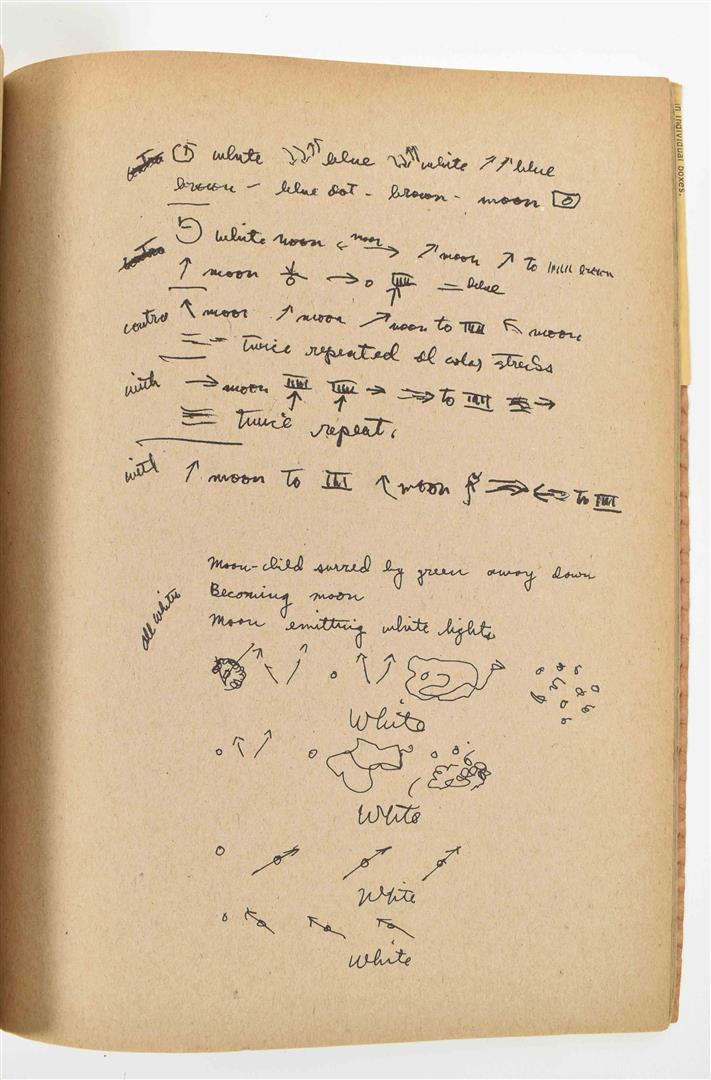 in individual boxes.
white ↓↓↑↑ blue ↓↓↑↑ white ↑↑ blue
brown - blue dot - brown - moon
white moon ← moon → ↗ moon ↗ to IIIII brown
↑ moon → o IIII = blue
contra ↖ moon ↗ moon ↗ moon to IIII ↖ moon
twice repeated
with → moon IIII IIII → ⇒ to IIII →
twice repeat.
with ↑ moon to III ↖ moon to III
Moon-child by green away down
Becoming moon
all white
Moon emitting white lights
White
White
White
White